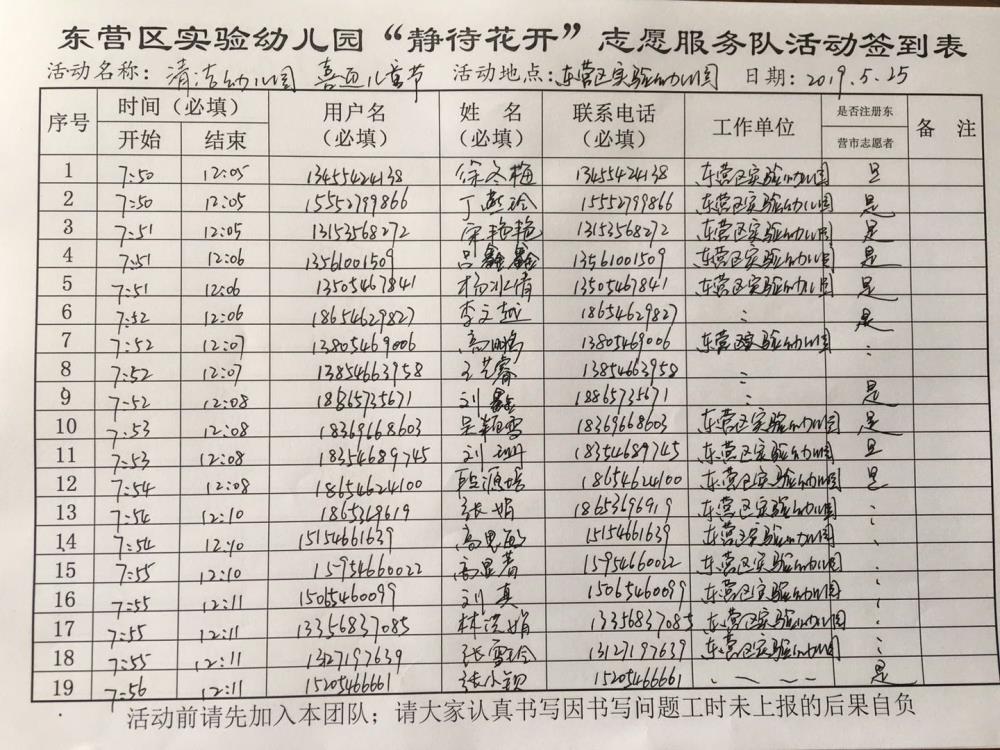 东营区实验幼儿园“静待花开”志愿服务队活动签到表
活动名称：清洁幼儿园 喜迎儿童节 活动地点：东营区实验幼儿园 日期：2019.5.25
序号 时间（必填） 用户名（必填） 姓名（必填） 联系电话（必填） 工作单位 是否注册东营市志愿者 备注
开始 结束
1 7:50 12:05 13455424138 徐冬梅 13455424138 东营区实验幼儿园 是
2 7:50 12:05 15552799866 丁燕玲 15552799866 东营区实验幼儿园 是
3 7:51 12:05 13153568272 宋艳艳 13153568272 东营区实验幼儿园 是
4 7:51 12:06 13561001509 吕鑫鑫 13561001509 东营区实验幼儿园 是
5 7:51 12:06 13505467841 杨冰倩 13505467841 东营区实验幼儿园 是
6 7:52 12:06 18654629827 李文越 18654629827 : 是
7 7:52 12:07 13805469006 高鹏 13805469006 东营区实验幼儿园 :
8 7:52 12:07 13854663958 王艺睿 13854663958 :
9 7:52 12:08 18865735671 刘鑫 18865735671 是
10 7:53 12:08 18369668603 吴颖雪 18369668603 东营区实验幼儿园 是
11 7:53 12:08 18354689745 刘珊 18354689745 东营区实验幼儿园 是
12 7:54 12:08 18654624100 18654624100 东营区实验幼儿园 是
13 7:54 12:10 张娟 18653696919 东营区实验幼儿园 :
14 7:54 12:10 15154661639 高思敏 15154661639 东营区实验幼儿园 :
15 7:55 12:10 15954660022 15954660022 东营区实验幼儿园 :
16 7:55 12:11 15065460099 刘真 15065460099 东营区实验幼儿园 :
17 7:55 12:11 13356837085 林洪娟 13356837085 东营区实验幼儿园 :
18 7:55 12:11 13127197639 张雪玲 13127197639 东营区实验幼儿园 :
19 7:56 12:11 15205466661 张小颖 15205466661 是
活动前请先加入本团队；请大家认真书写因书写问题工时未上报的后果自负